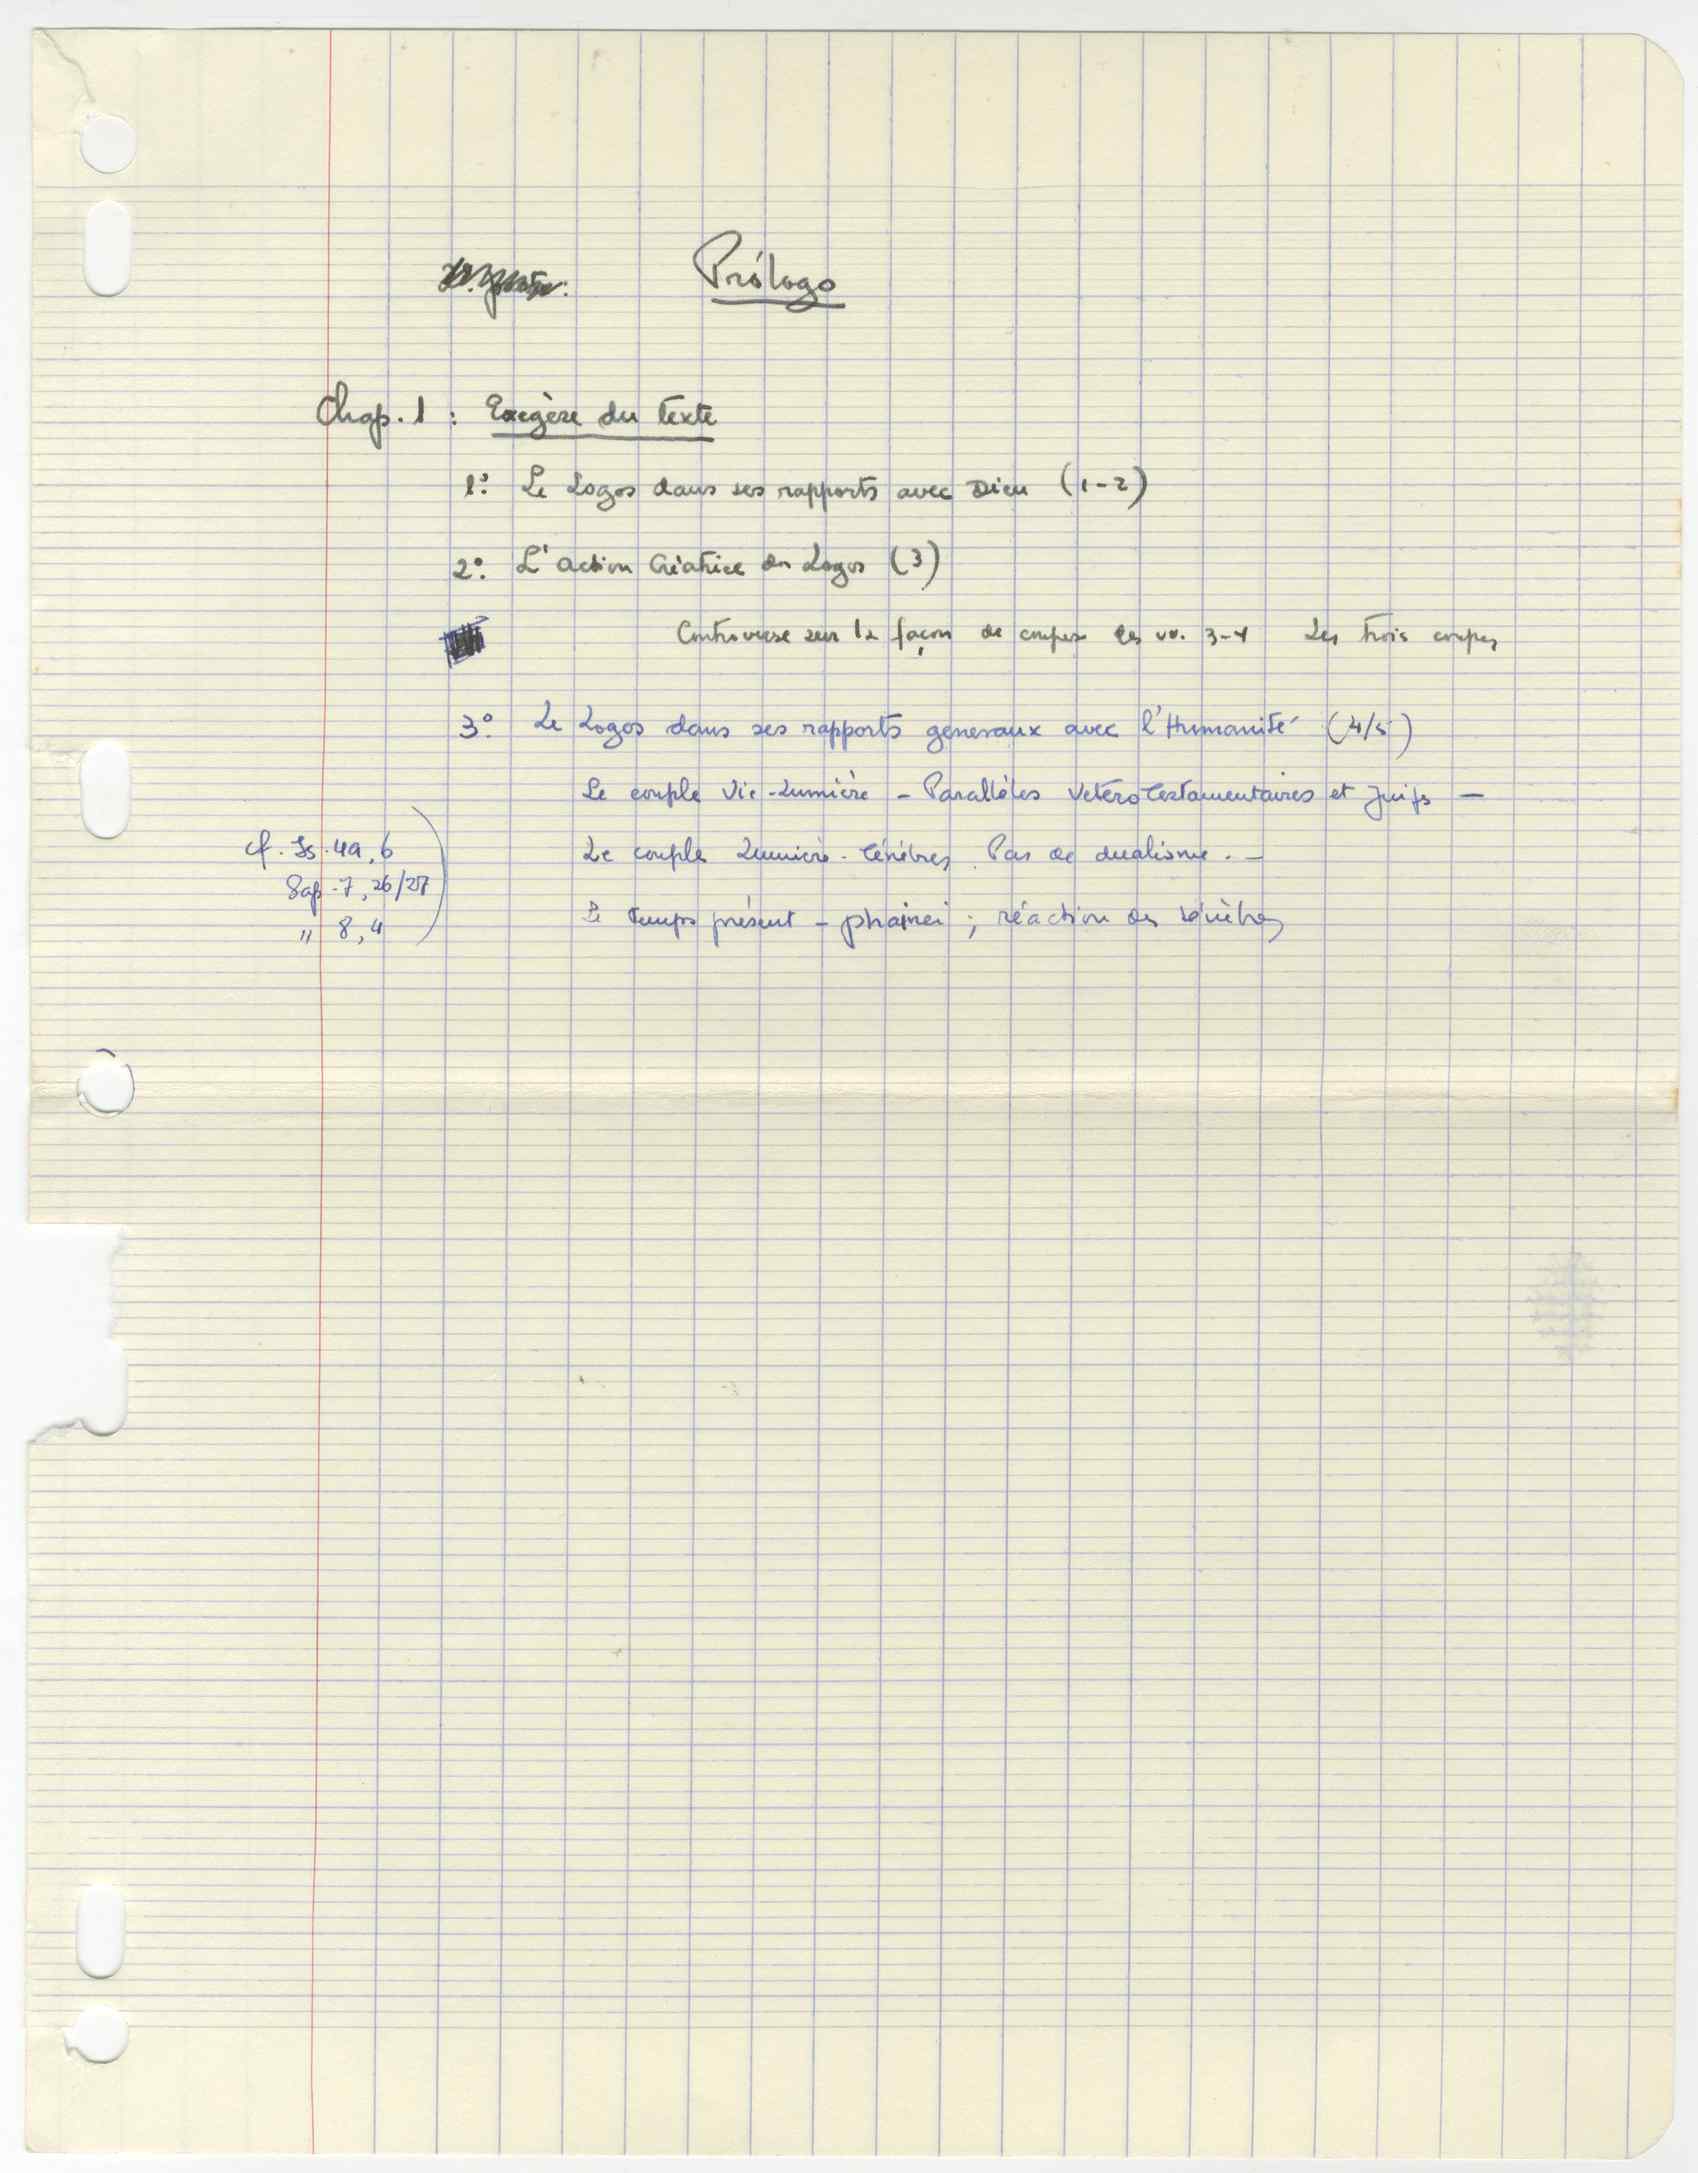 Prólogo
Chap. 1 : Exégèse du texte
1º. Le Logos dans ses rapports avec Dieu (1-2)
2º. L'action Créatrice du Logos (3)
Controverse sur la façon de couper les vv. 3-4 Les trois coupes
3º. Le Logos dans ses rapports generaux avec l'Humanité (4/5)
Le couple Vie-Lumière - Parallèles Vetérotestamentaires et Juifs -
cf. Is. 49, 6
Le couple Lumière-Ténèbres. Pas de dualisme. -
Sap. 7, 26/27
Le temps présent - phainei ; réaction des ténèbres
" 8, 4